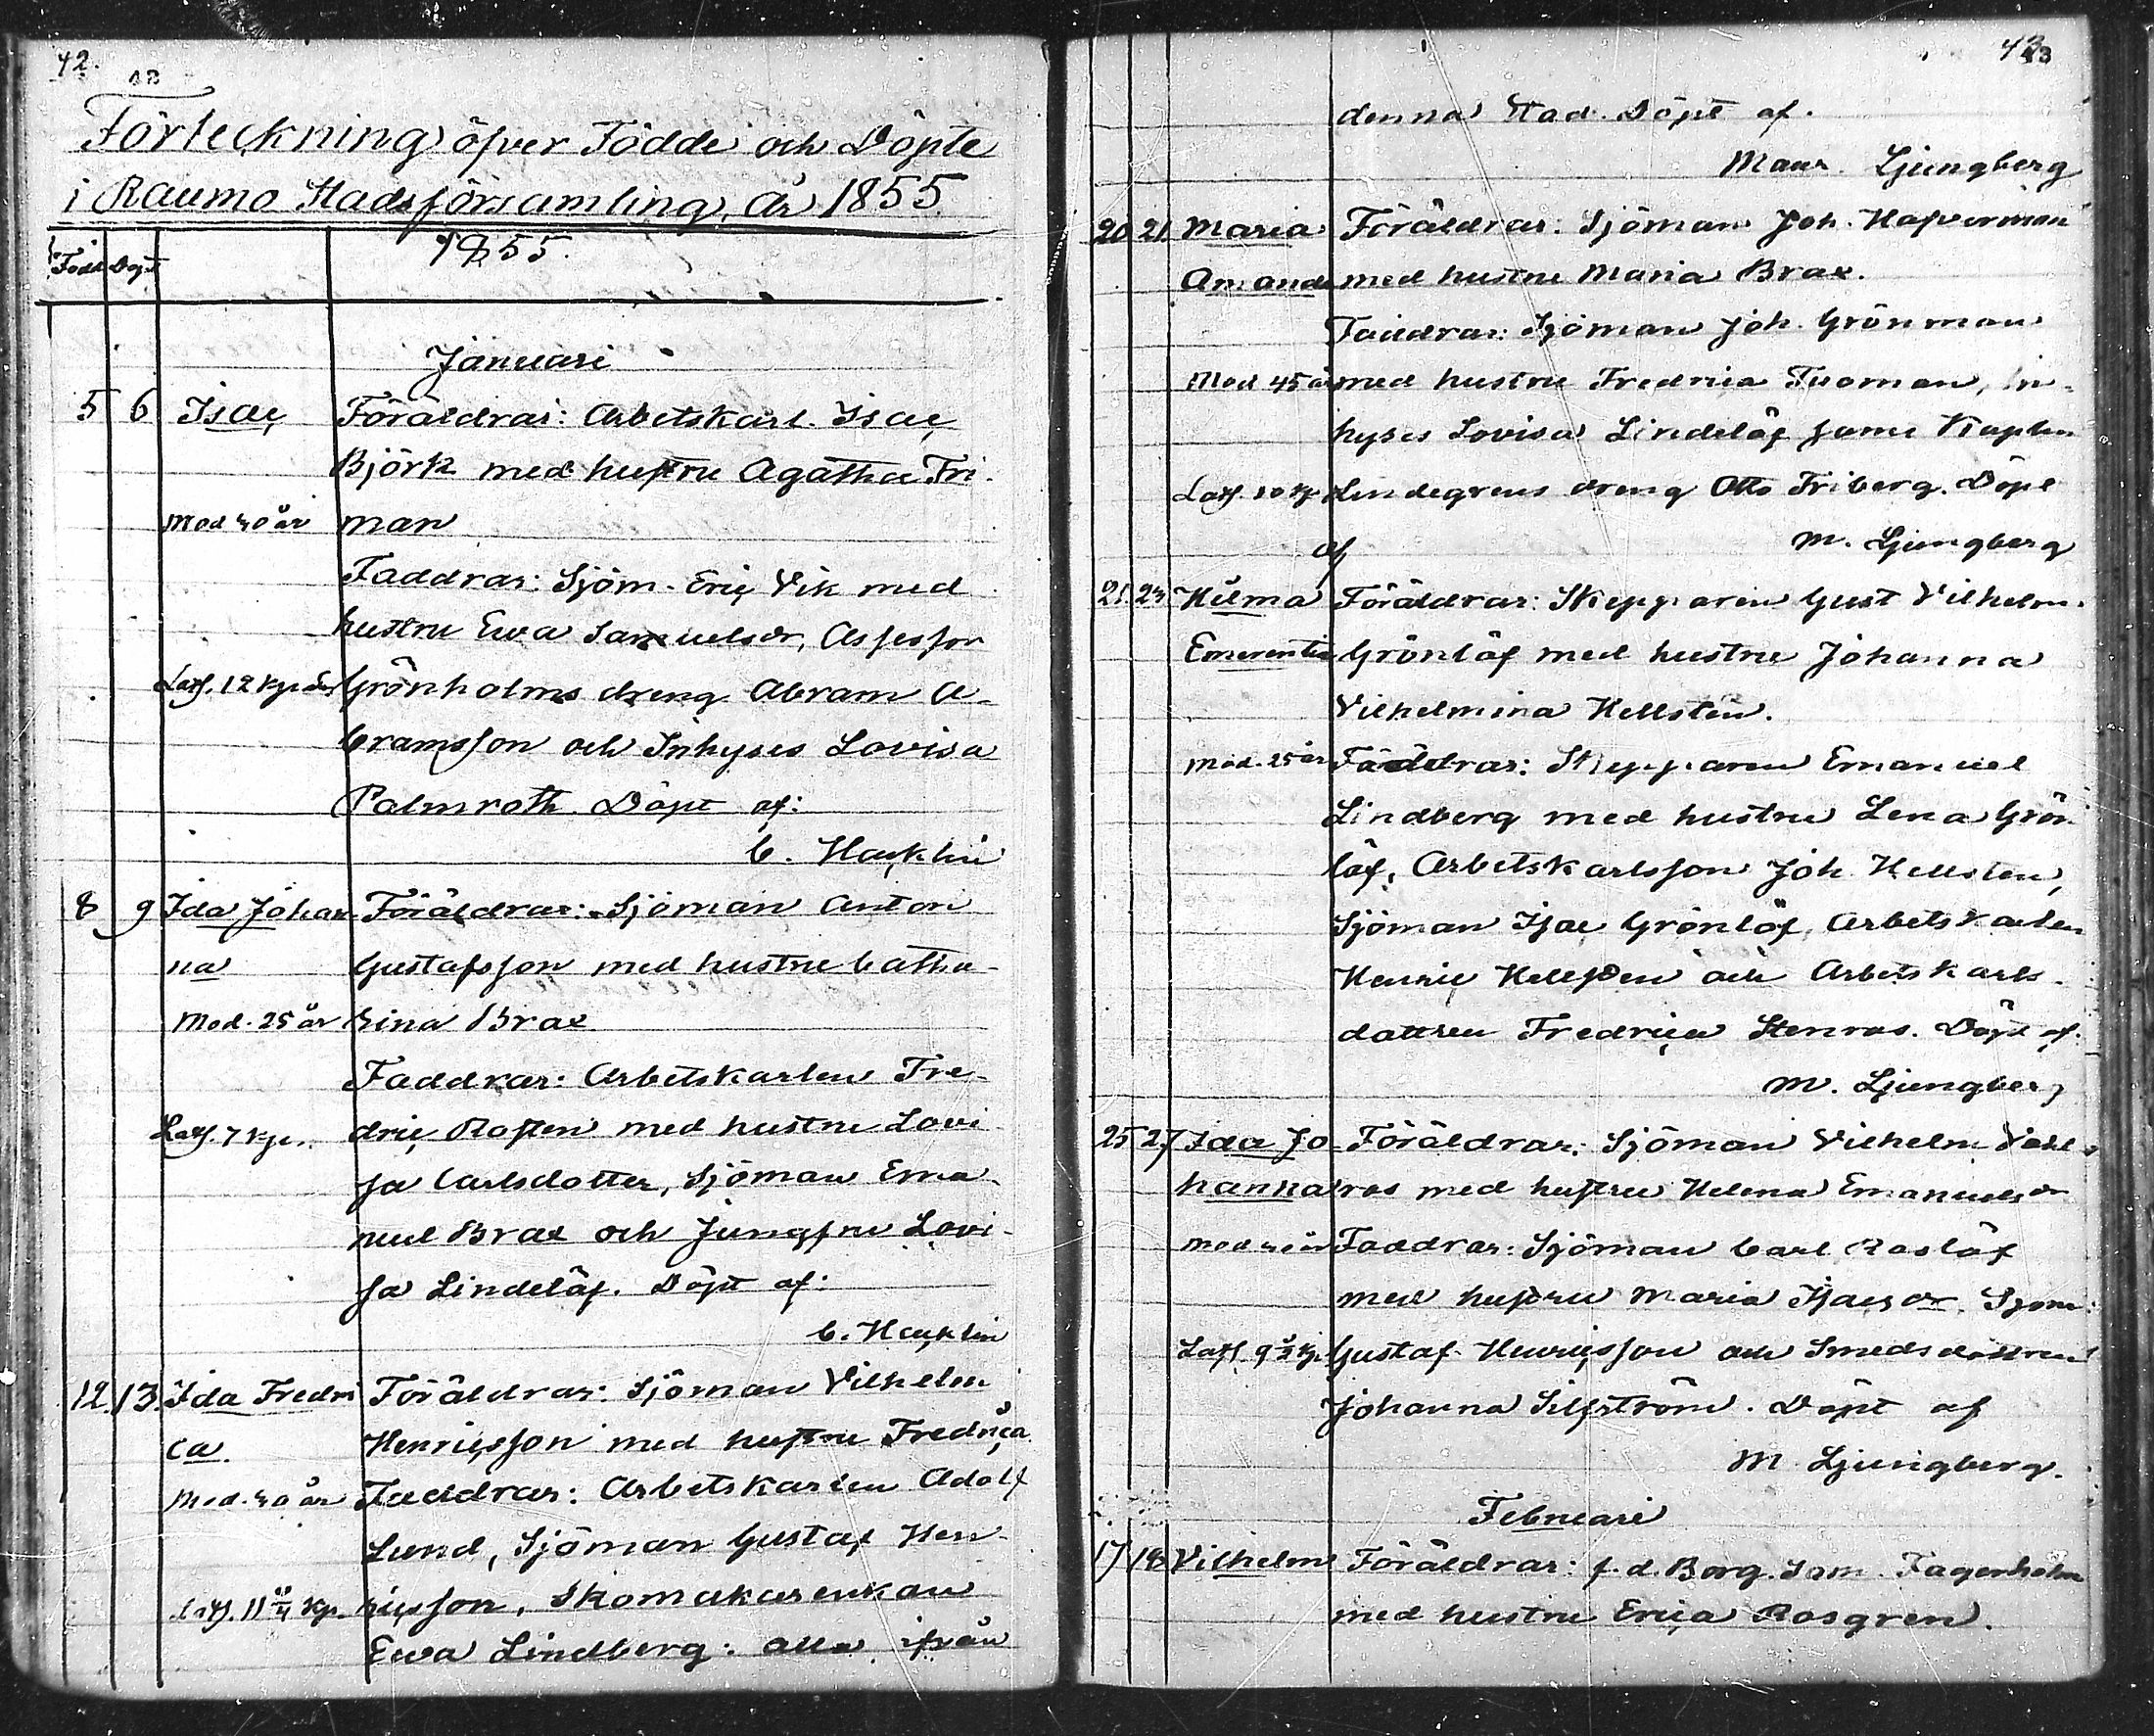 42.
Förteckning öfver Födde och Döpte
i Raumo Stadsförsamling, år 1855.
Född Döpt
1855.
Januari
5 6 Isac Föräldrar: Arbetskarl. Isac
Björk med hustru Agatha Fri-
Mod 40 år man
Faddrar: Sjöm. Eric Vik med
hustru Ewa Samuelsdr, Assessor
Grönholms dreng Abram A-
bramsson och Inhyses Lovisa
Palmroth. Döpt af:
C. Hacklin
8 9 Ida Johan- Föräldrar: Sjöman Anton
na Gustafsson med hustru Catha-
Mod. 25 år rina Brax
Faddrar: Arbetskarlen Fre-
dric Rosten med hustru Lovi-
sa Carlsdotter, Sjöman Ema-
nuel Brax och Jungfru Lovi-
sa Lindelöf. Döpt af:
C. Hacklin
12. 13. Ida Fredri Föräldrar: Sjöman Vilhelm
ca. Henricsson med hustru Fredrica
Mod. 40 år Faddrar: Arbetskarlen Adolf
Lund, Sjöman Gustaf Hen-
ricsson, Skomakarenkan
Ewa Lindberg: alla ifrån
43
denna Stad. Döpt af.
Maur. Ljungberg
20 21. Maria Föräldrar: Sjöman Joh. Hafverman
Amanda med hustru Maria Brax.
Faddrar: Sjöman Joh. Grönman
Mod 45 år med hustru Fredrica Tuoman, In-
hyses Lovisa Lindelöf samt Kapten
Lindegrens dreng Otto Friberg. Döpt
af M. Ljungberg
21. 23 Hilma Föräldrar: Skepparen Gust Vilhelm.
Emerentia Grönlöf med hustru Johanna
Vilhelmina Hellsten.
Mod. 25 år Faddrar: Skepparen Emanuel
Lindberg med hustru Lena Grön-
löf, Arbetskarlsson Joh. Hellsten,
Sjöman Isac Grönlöf, Arbetskarlen
Henric Hellsten och Arbetskarls-
dottren Fredrica Stenros. Döpt af.
M. Ljungberg
25 27 Ida Jo- Föräldrar: Sjöman Vilhelm Vahl
hanna ros med hustru Helena Emanuelsdr
Faddrar: Sjöman Carl Roslöf
med hustru Maria Isacsdr. Sjöm:
Gustaf Henricsson och Smedsdottren
Johanna Silfström. Döpt af
M. Ljungberg.
Februari
17 18 Vilhelm Föräldrar: f.d. Borg. Sam. Fagerholm
med hustru Erica Rosgren.